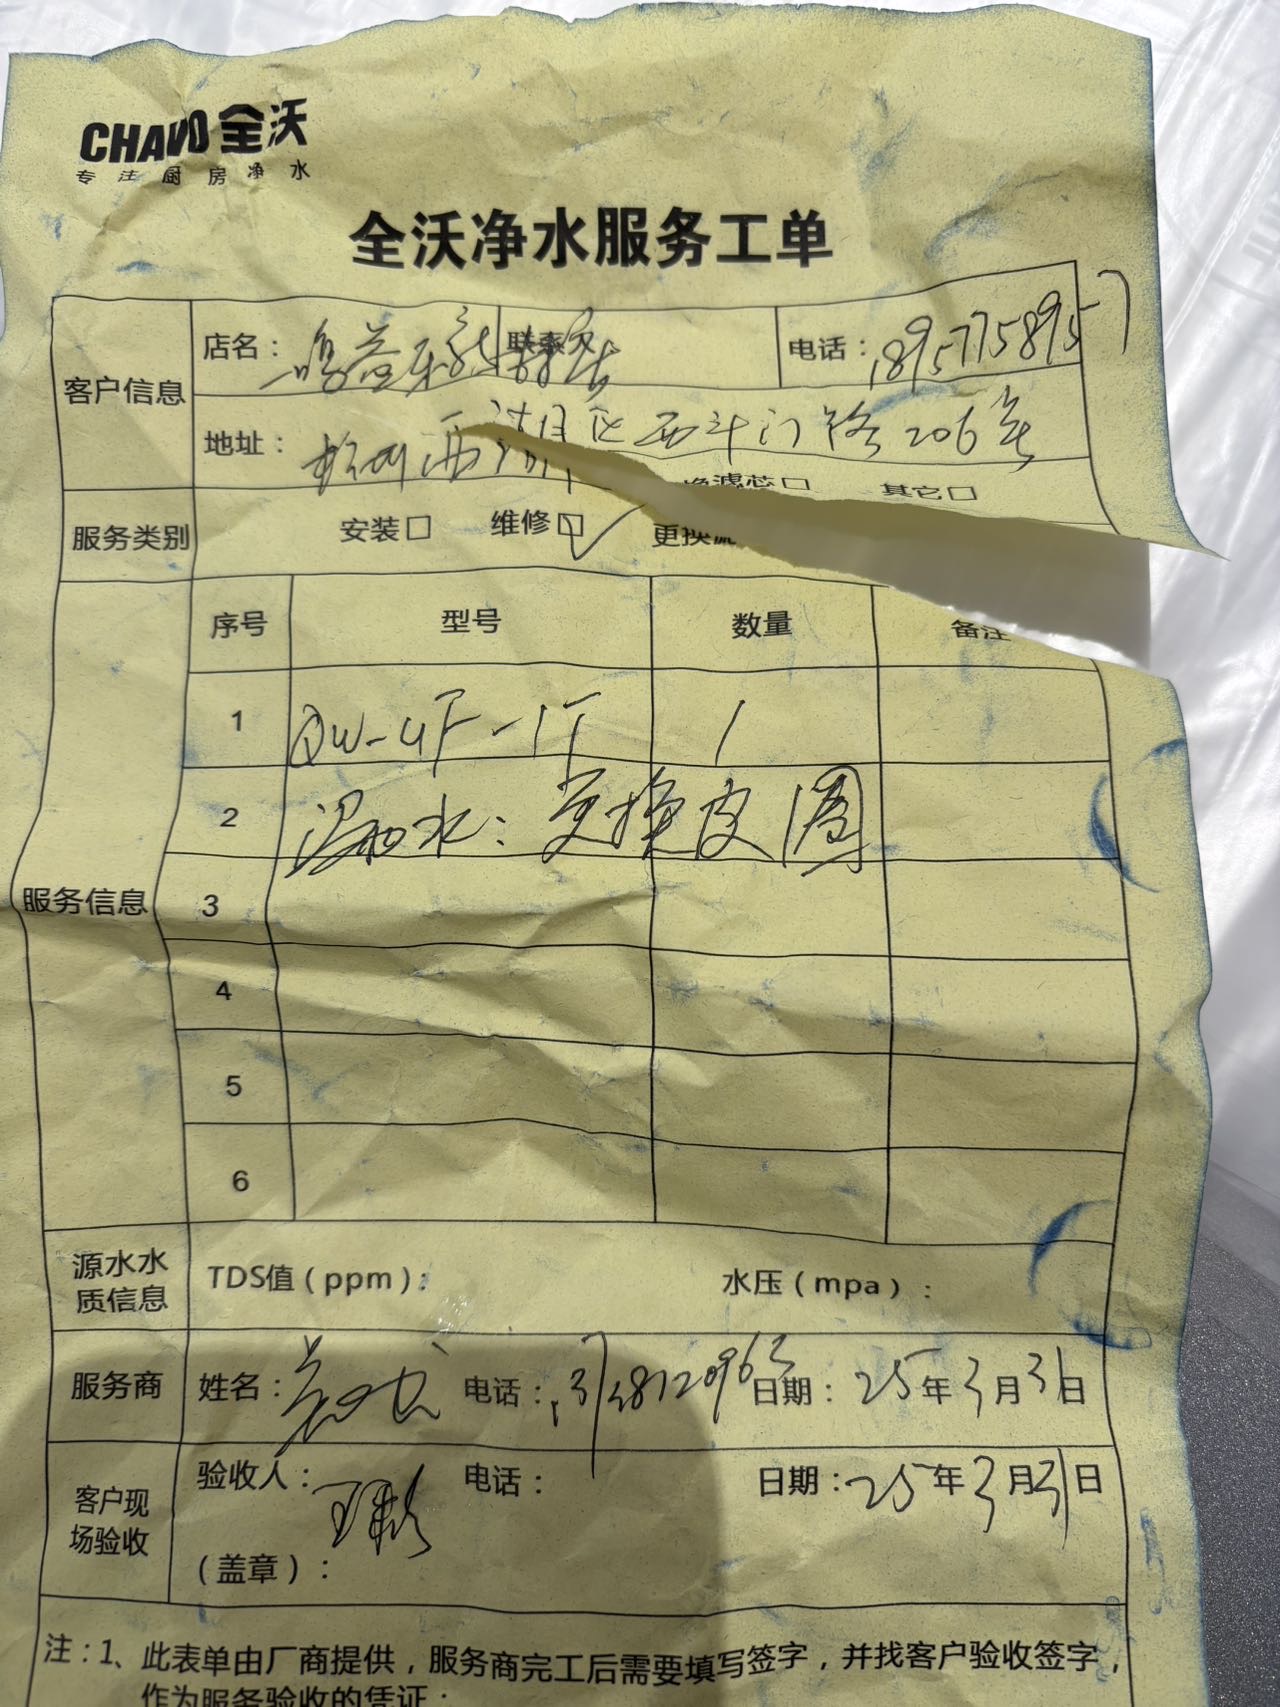 CHAVO 全沃
专注厨房净水
全沃净水服务工单
客户信息
店名: 联系人 电话: 18957758957
地址: 杭州西湖区西斗门路206号
服务类别 安装□ 维修□✓ 更换滤芯□ 其它□
服务信息
序号 型号 数量 备注
1 QW-4F-1T 1
2 漏水: 更换皮圈
3
4
5
6
源水水质信息 TDS值(ppm): 水压(mpa):
服务商 姓名: 电话: 日期: 25年3月31日
客户现场验收 验收人: 电话: 日期: 25年3月31日
(盖章):
注:1、此表单由厂商提供,服务商完工后需要填写签字,并找客户验收签字,
作为服务验收的凭证;